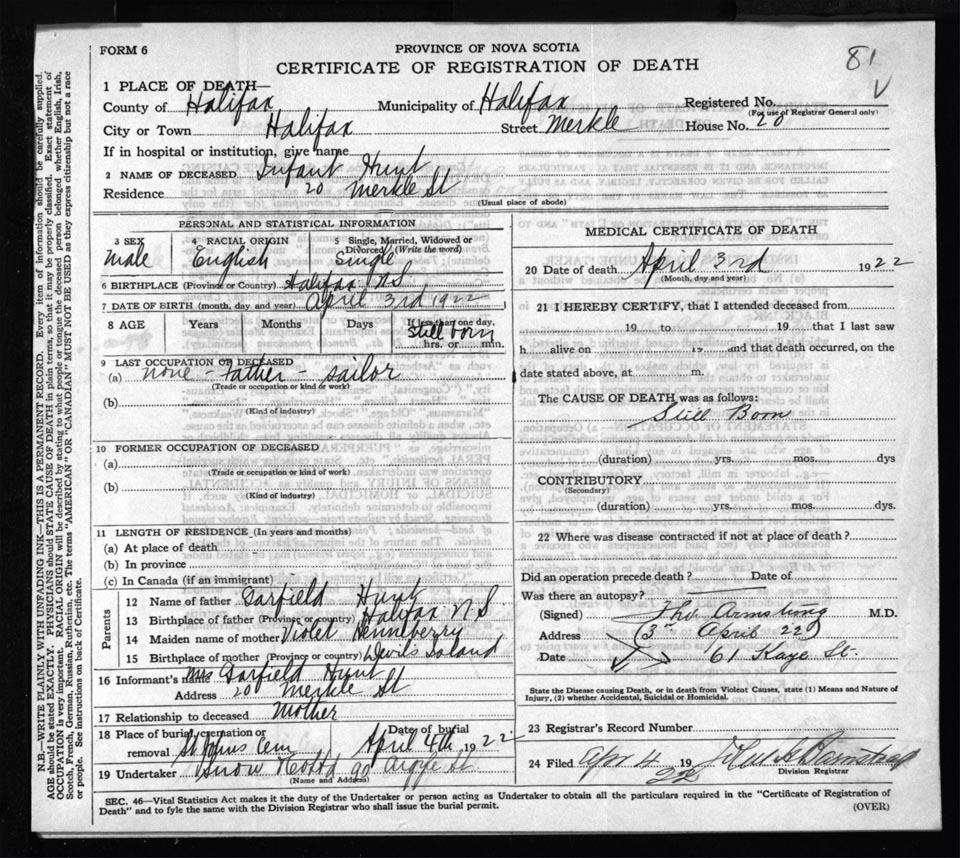 FORM 6
PROVINCE OF NOVA SCOTIA
81
CERTIFICATE OF REGISTRATION OF DEATH
1 PLACE OF DEATH—
County of Halifax Municipality of Halifax Registered No.
(For use of Registrar General only)
City or Town Halifax Street Merkle House No. 20
If in hospital or institution, give name
2 NAME OF DECEASED Infant Hunt
Residence 20 Merkle St
(Usual place of abode)
PERSONAL AND STATISTICAL INFORMATION
3 SEX 4 RACIAL ORIGIN 5 Single, Married, Widowed or Divorced (Write the word)
Male English Single
6 BIRTHPLACE (Province or Country) Halifax N S
7 DATE OF BIRTH (month, day and year) April 3rd 1922
8 AGE Years Months Days If less than one day,
Still born
hrs. or min.
9 LAST OCCUPATION OF DECEASED
(a) none - Father - sailor
(Trade or occupation or kind of work)
(b)
(Kind of industry)
10 FORMER OCCUPATION OF DECEASED
(a)
(Trade or occupation or kind of work)
(b)
(Kind of industry)
11 LENGTH OF RESIDENCE (In years and months)
(a) At place of death
(b) In province
(c) In Canada (if an immigrant)
Parents
12 Name of father Garfield Hunt
13 Birthplace of father (Province or country) Halifax N S.
14 Maiden name of mother Violet Henneberry
15 Birthplace of mother (Province or country) Devils Island
16 Informant's name Mrs Garfield Hunt
Address 20 Merkle St
17 Relationship to deceased Mother
18 Place of burial, cremation or removal St Johns Cem Date of burial April 4th 1922
19 Undertaker Snow Co Ltd 90 Argyle St.
(Name and Address)
MEDICAL CERTIFICATE OF DEATH
20 Date of death April 3rd 1922
(Month, day and year)
21 I HEREBY CERTIFY, that I attended deceased from
19 to 19 that I last saw
h alive on 19 and that death occurred, on the
date stated above, at m.
The CAUSE OF DEATH was as follows:
Still Born
(duration) yrs. mos. dys
CONTRIBUTORY
(Secondary)
(duration) yrs. mos. dys.
22 Where was disease contracted if not at place of death?
Did an operation precede death? Date of
Was there an autopsy?
(Signed) M.D.
Address 3rd April 22
Date 61 Kaye St.
State the Disease causing Death, or in death from Violent Causes, state (1) Means and Nature of
Injury, (2) whether Accidental, Suicidal or Homicidal.
23 Registrar's Record Number
24 Filed Apr 4 1922
Division Registrar
SEC. 46—Vital Statistics Act makes it the duty of the Undertaker or person acting as Undertaker to obtain all the particulars required in the "Certificate of Registration of
Death" and to fyle the same with the Division Registrar who shall issue the burial permit.
(OVER)
N.B.—WRITE PLAINLY WITH UNFADING INK—THIS IS A PERMANENT RECORD. Every item of information should be carefully supplied.
AGE should be stated EXACTLY. PHYSICIANS should STATE CAUSE OF DEATH in plain terms, so that it may be properly classified. Exact statement of
OCCUPATION is very important. RACIAL ORIGIN will be described by stating to what people or tongue the deceased person belonged, whether English, Irish,
Scotch, French, German, Russian, Ruthenian, etc. The terms "AMERICAN" or "CANADIAN" MUST NOT BE USED as they express citizenship but not a race
or people. See instructions on back of Certificate.